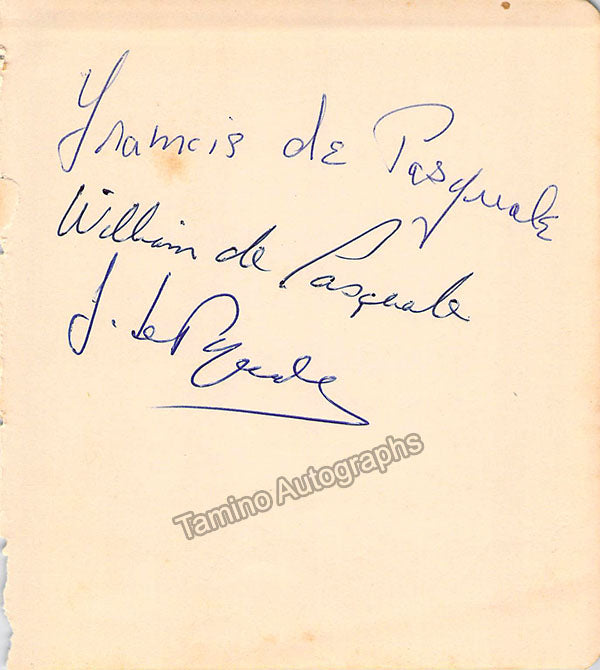 Francis de Pasquale
William de Pasquale
J. de Pasquale
Tamino Autographs